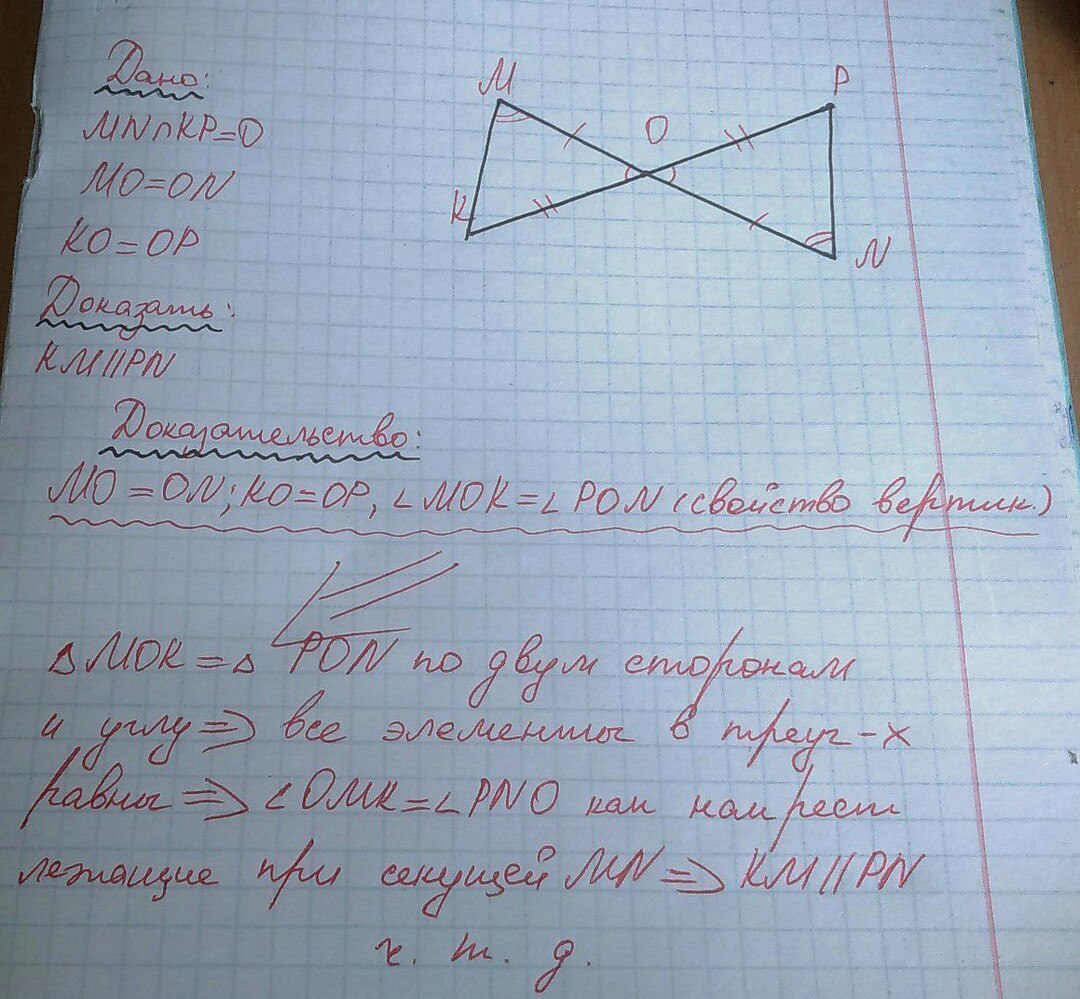 Дано:
MN∩KP=O
MO=ON
KO=OP
Доказать:
KM||PN
M
P
O
K
N
Доказательство:
MO=ON; KO=OP, ∠MOK=∠PON (свойство вертик.)
△MOK=△ PON по двум сторонам
и углу ⇒ все элементы в треуг-х
равны ⇒ ∠OMK=∠PNO как накрест
лежащие при секущей MN ⇒ KM||PN
ч. т. д.